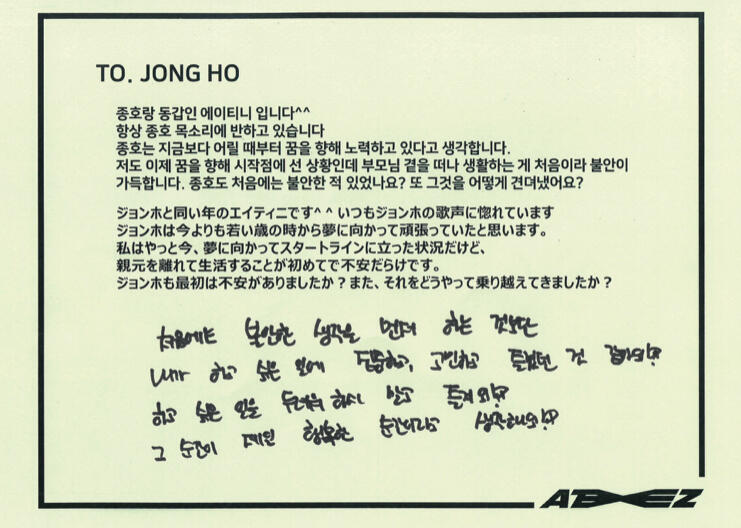 TO. JONG HO
종호랑 동갑인 에이티니 입니다^^
항상 종호 목소리에 반하고 있습니다
종호는 지금보다 어릴 때부터 꿈을 향해 노력하고 있다고 생각합니다.
저도 이제 꿈을 향해 시작점에 선 상황인데 부모님 곁을 떠나 생활하는 게 처음이라 불안이
가득합니다. 종호도 처음에는 불안한 적 있었나요? 또 그것을 어떻게 견뎌냈어요?
ジョンホと同い年のエイティニです^ ^ いつもジョンホの歌声に惚れています
ジョンホは今よりも若い歳の時から夢に向かって頑張っていたと思います。
私はやっと今、夢に向かってスタートラインに立った状況だけど、
親元を離れて生活することが初めてで不安だらけです。
ジョンホも最初は不安がありましたか？また、それをどうやって乗り越えてきましたか？
처음에는 불안한 생각을 먼저 하는 것보단
내가 하고 싶은 일에 고민하고 즐겼던 것
하고 싶은 일을 두려워 하지 말고
그 순간이 제일 행복한 순간이라고
ATEEZ